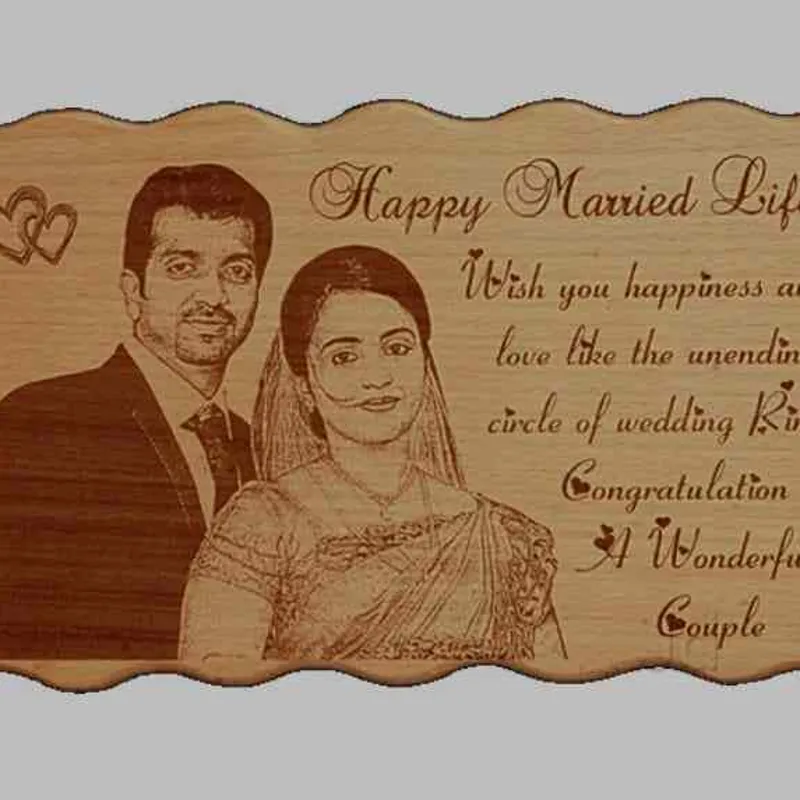 Happy Married Lif
Wish you happiness a
love like the unendin
circle of wedding Rin
Congratulation
A Wonderfu
Couple